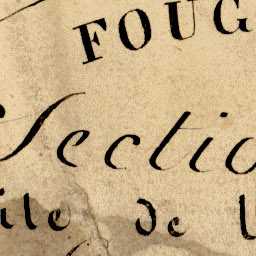 FOUG
Sectio
ile de l